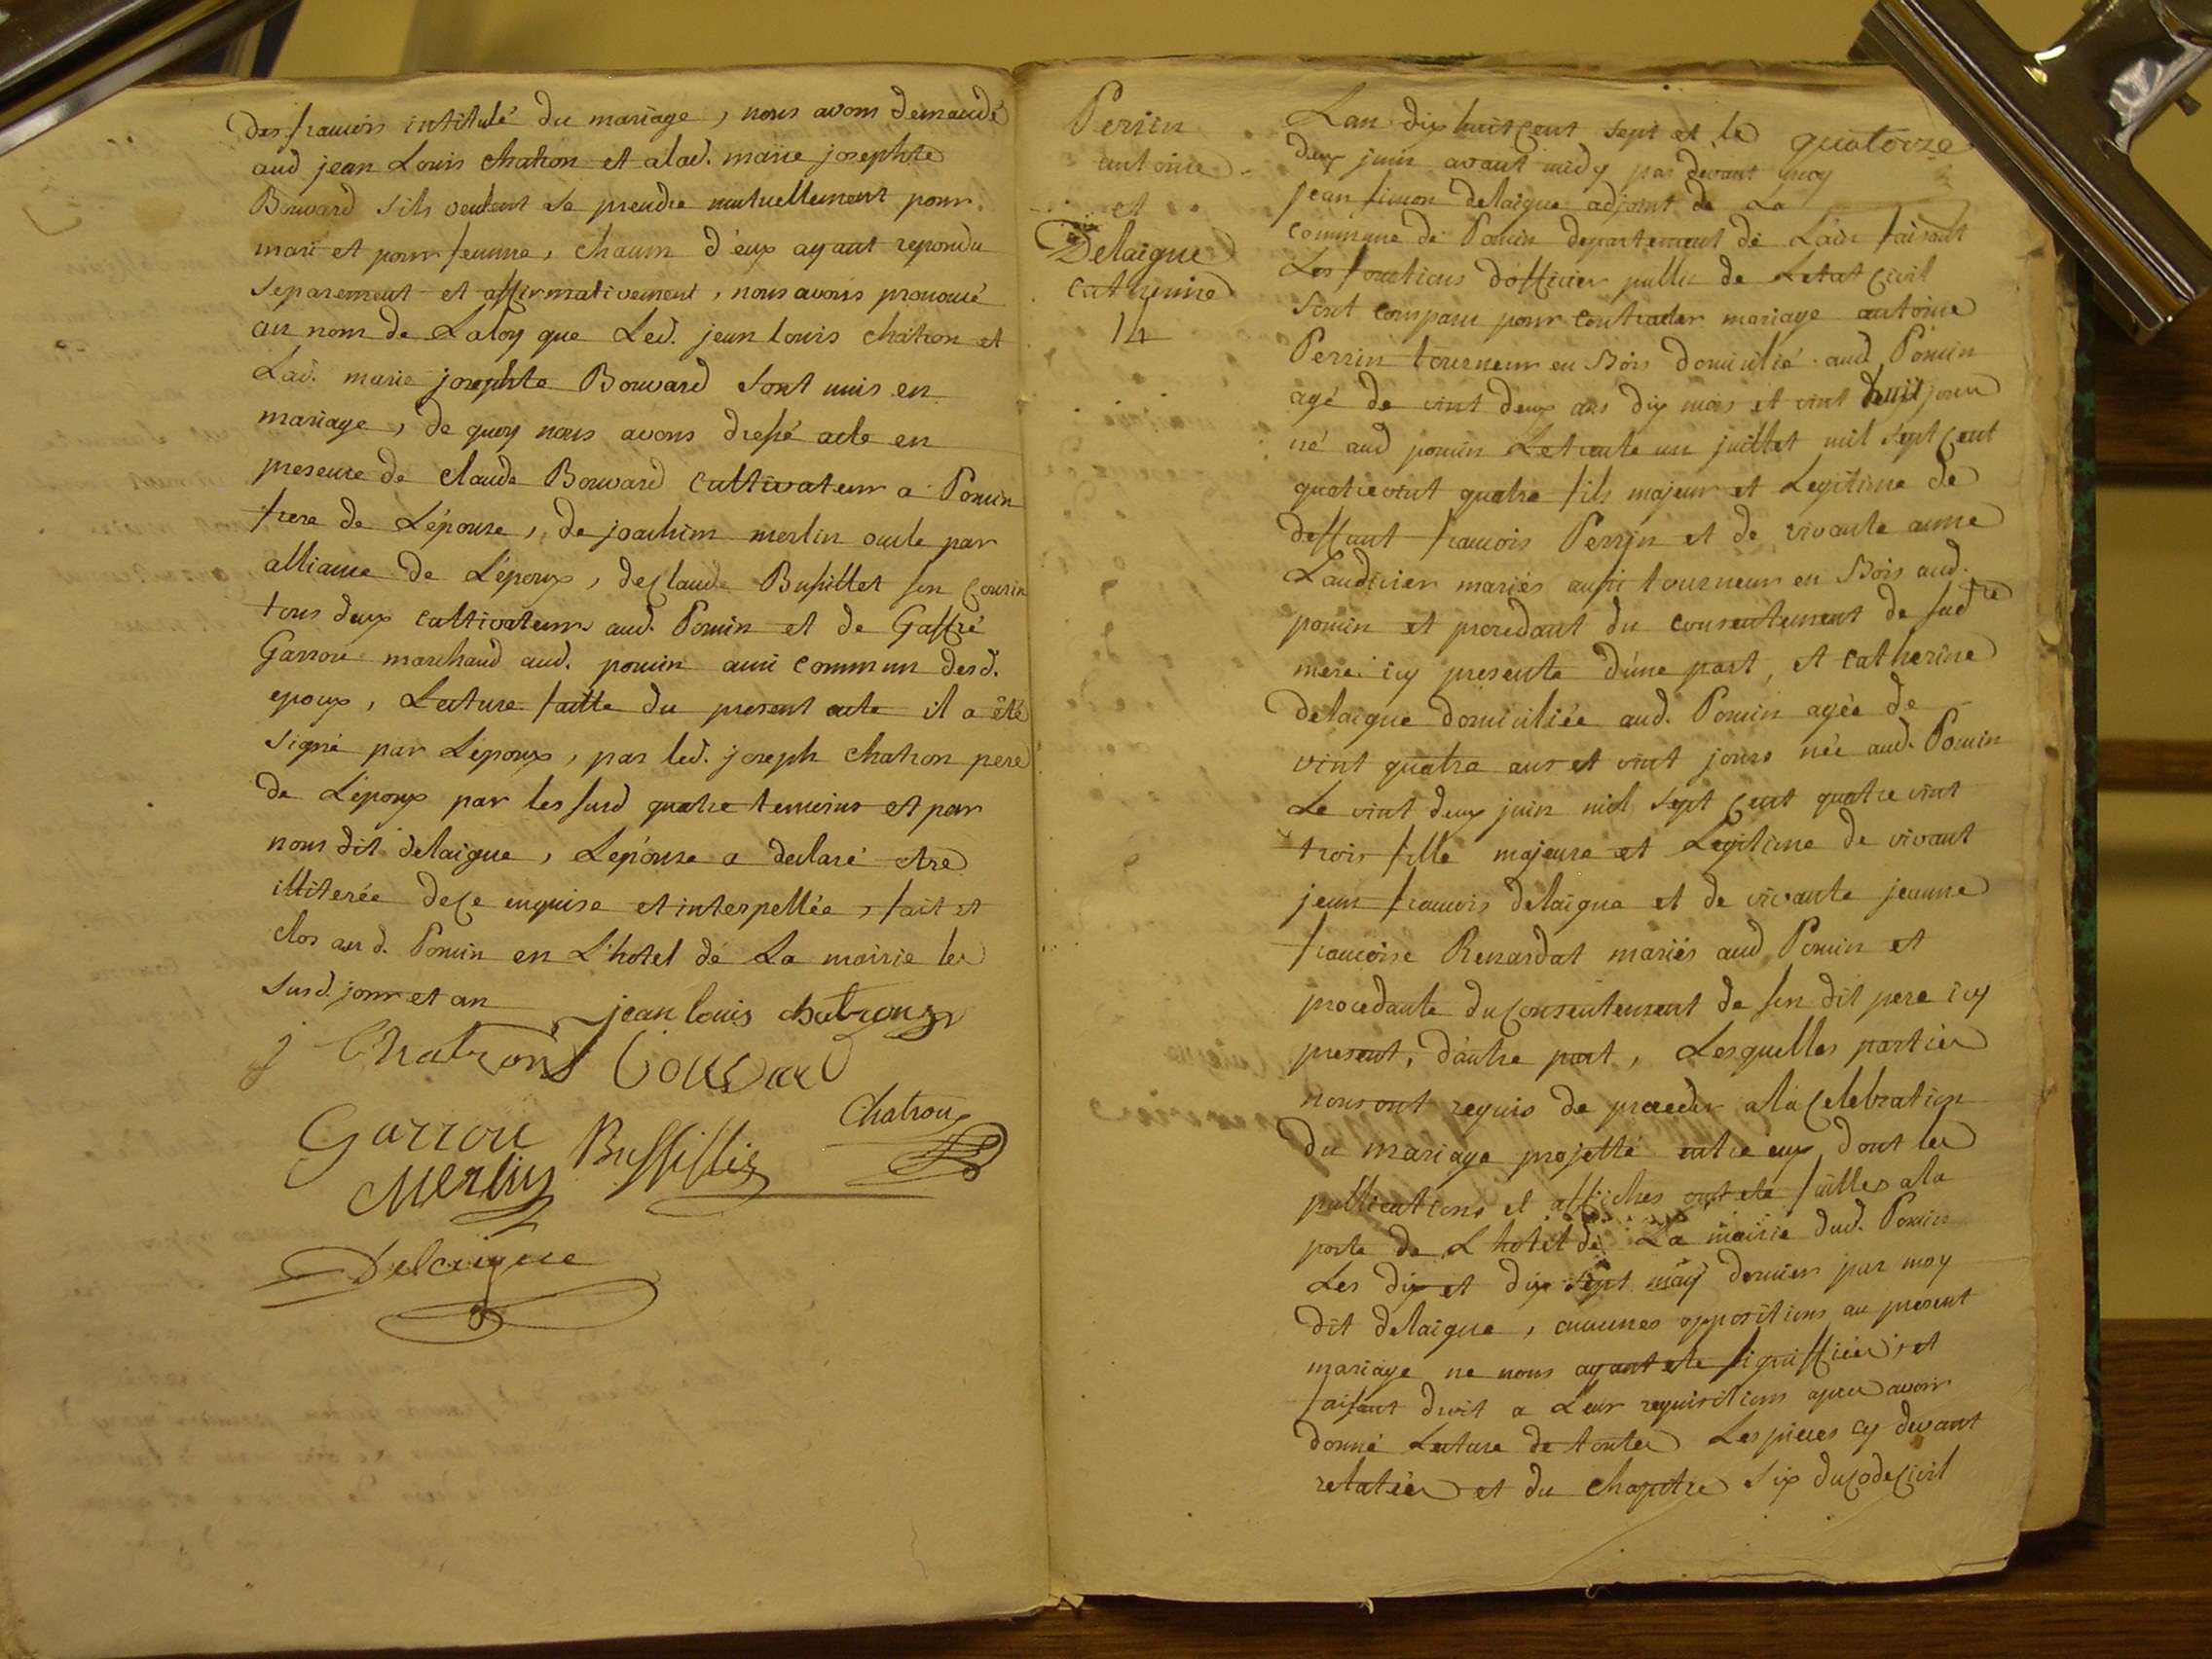 des francois intitulé du mariage, nous avons demandé
aud jean Louis chatron et alad. marie josephte
Bouvard s'ils veulent se prendre mutuellement pour
mari et pour femme, chacun d'eux ayant repondu
separement et affirmativement, nous avons prononcé
au nom de Laloy que Led. jean Louis chatron et
Lad. marie josephte Bouvard sont unis en
mariage, de quoy nous avons dressé acte en
presence de claude Bouvard cultivateur a Poncin
frere de L'épouse, de joachim merlin oncle par
alliance de L'époux, declaude Bussillet son cousin
tous deux cultivateurs aud. Poncin et de
Garron marchand aud. poncin ami commun desd.
epoux, Lecture faitte du present acte il a été
signé par L'epoux, par led. joseph chatron pere
de L'époux par les susd quatre temoins et par
nous dit delaigue, L'épouse a declaré etre
illiterée dece enquise et interpellée, fait et
clos aud. Poncin en L'hotel de La mairie les
susd. jour et an jean louis chatron
j Chatron Bouvard
Chatron
Garron Bussillet
Merlin
Delaigue
Perrin
antoine
et
Delaigue
catherine
14
Lan dix huit cent sept et le quatorze
deux juin avant midy par devant moy
jean simon delaigue adjoint de La
commune de Poncin departement de Lain faisant
Les fonctions d'officier public de Letat civil
sont comparu pour contracter mariage antoine
Perrin tourneur en Bois domicilié aud. Poncin
agé de vint deux ans dix mois et vint huit jours
né aud poncin Letrente un juillet mil sept cent
quatrevint quatre fils majeur et Legitime de
deffunt francois Perrin et de vivante anne
Laudicier mariés aussi tourneur en Bois aud.
poncin et procedant du consentement de sadte
mere icy presente d'une part, et catherine
delaigue domiciliée aud. Poncin agée de
vint quatre ans et vint jours née aud. Poncin
Le vint deux juin mil sept cent quatre vint
trois fille majeure et Legitime de vivant
jean francois delaigue et de vivante jeanne
francoise Renardat mariés aud Poncin et
procedante du consentement de son dit pere icy
present, d'autre part, Lesquelles parties
nous ont requis de proceder ala celebration
du mariage projetté entre eux dont les
publications et affiches ont été faittes ala
porte de L'hotel de La mairie dud. Poncin
Les dix et dix sept may dernier par moy
dit delaigue, aucunes oppositions au present
mariage ne nous ayant ete signiffiées, et
faisant droit a Leur requisitions apres avoir
donné Lecture de toutes Les pieces cy devant
relatées et du chapitre six ducode civil